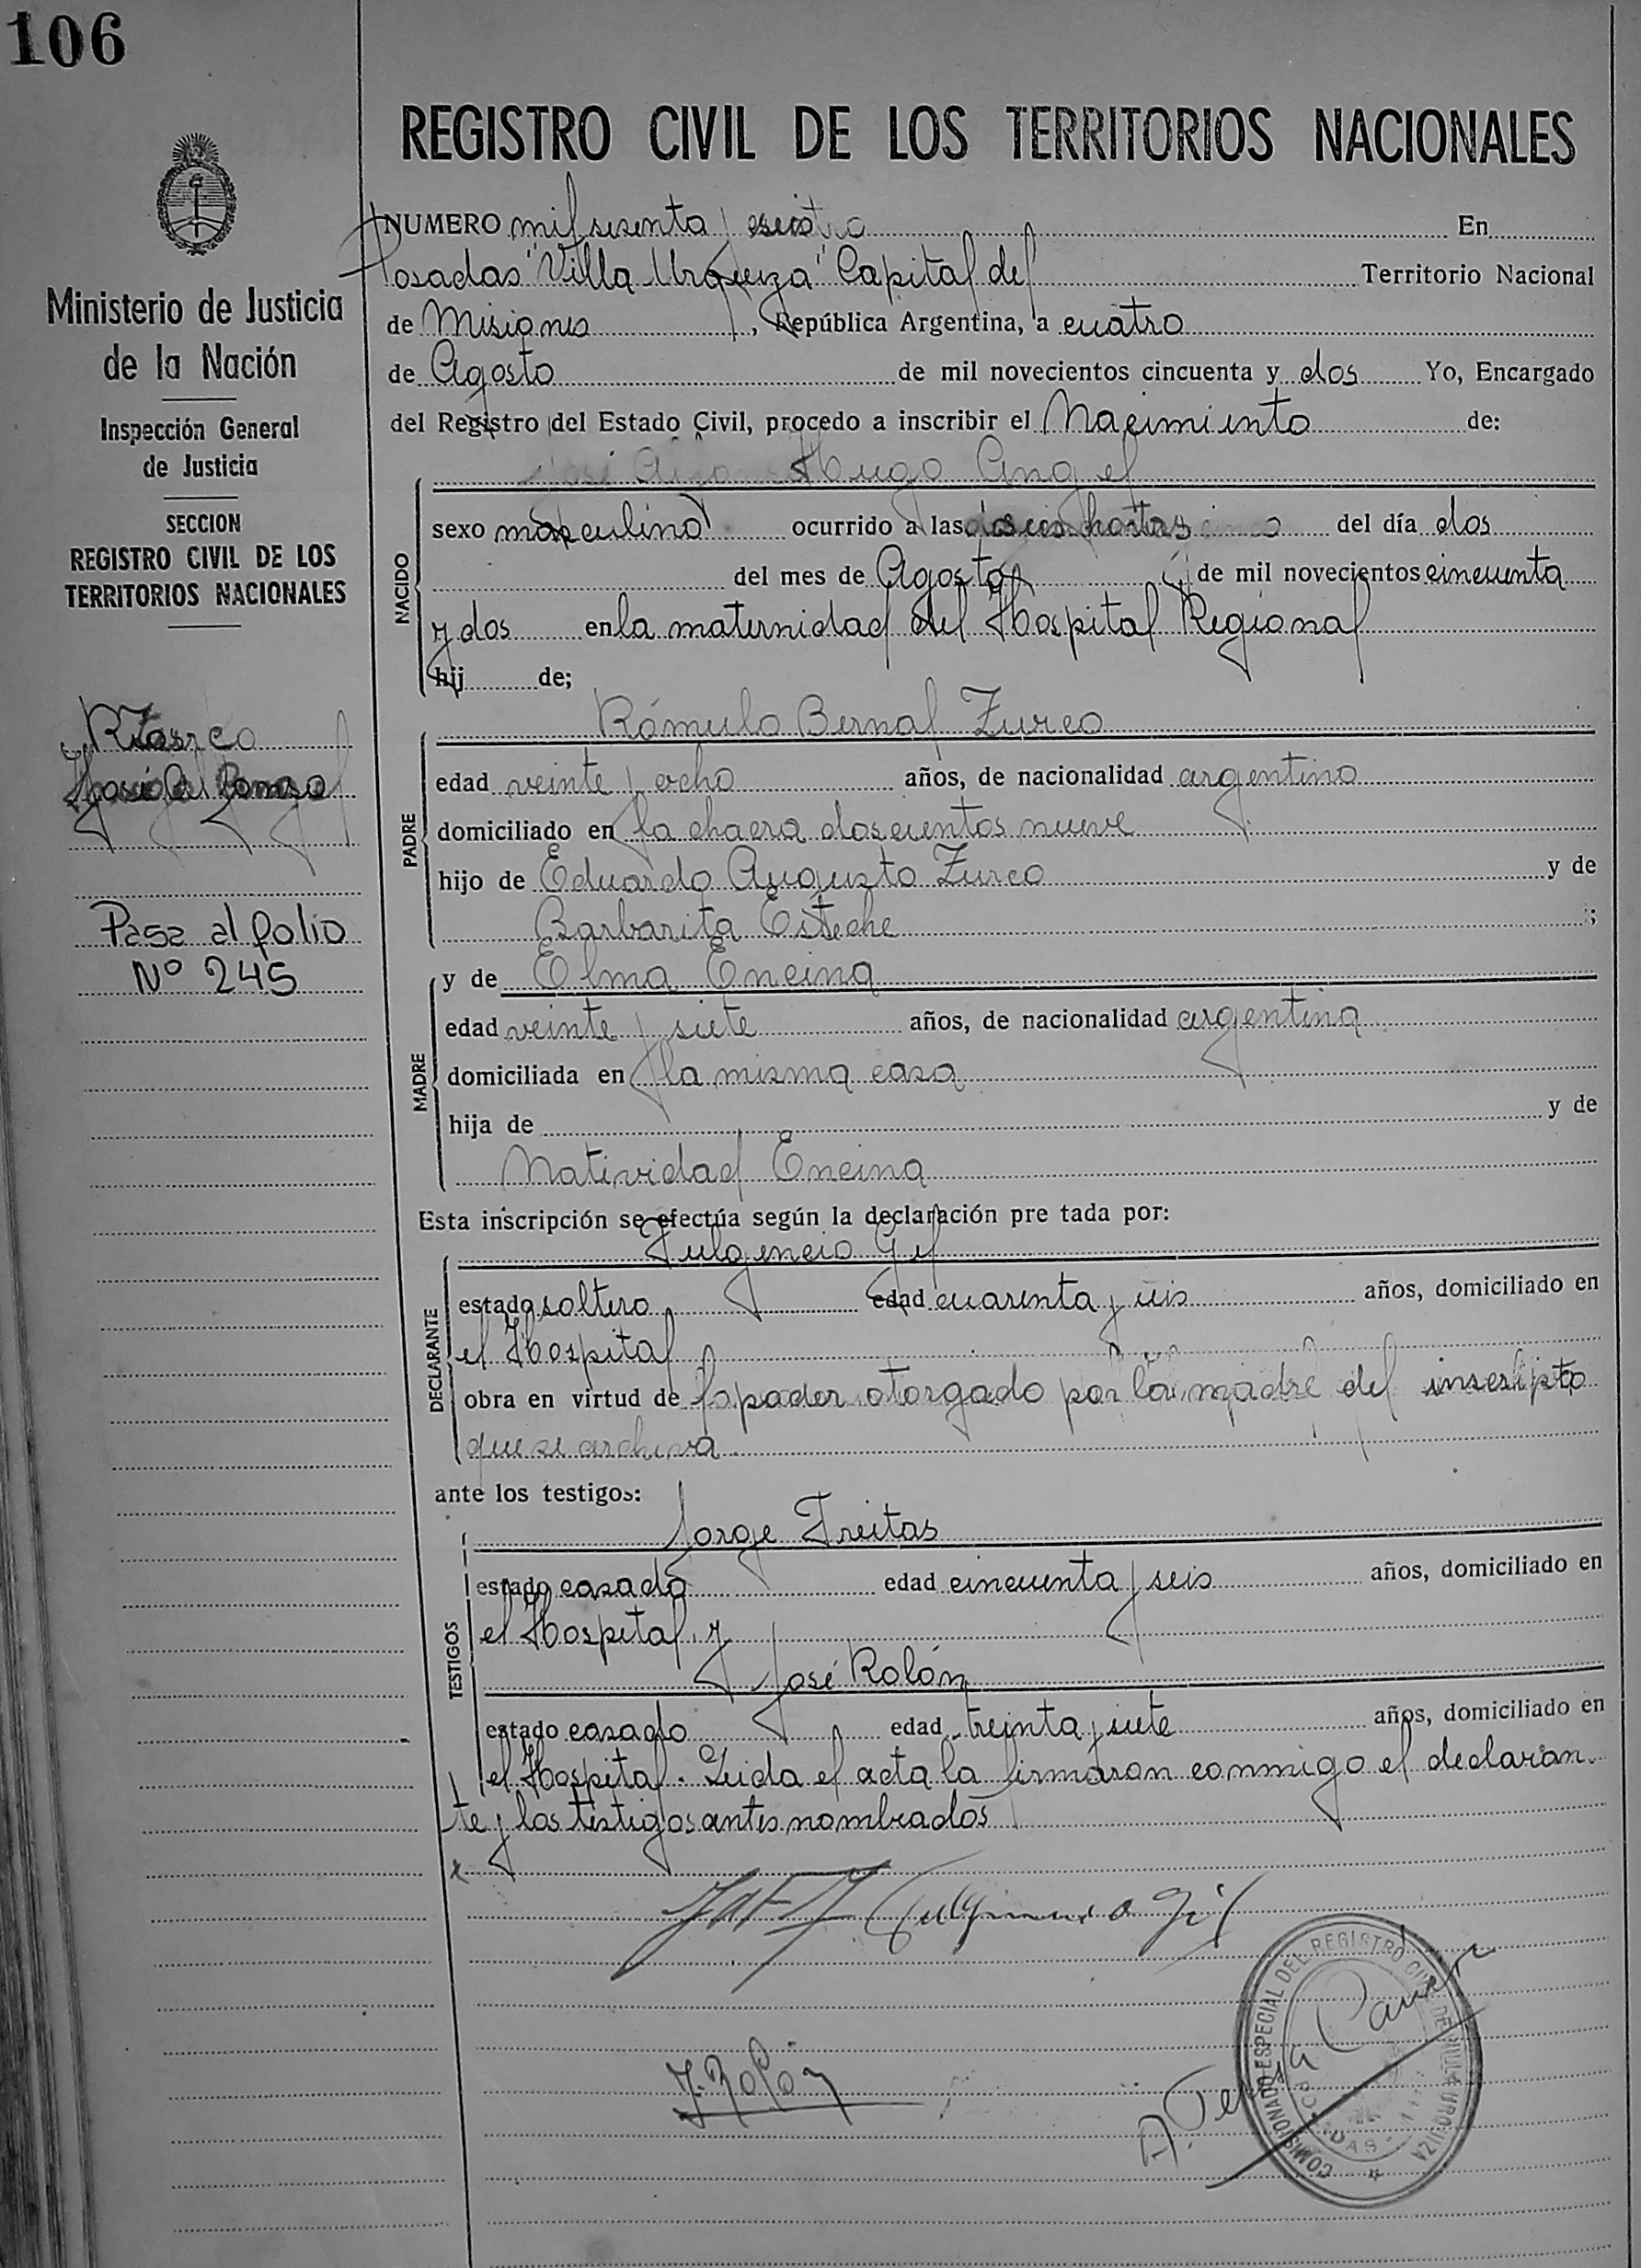 106
REGISTRO CIVIL DE LOS TERRITORIOS NACIONALES
Ministerio de Justicia
de la Nación
Inspección General
de Justicia
SECCION
REGISTRO CIVIL DE LOS
TERRITORIOS NACIONALES
Pasa al folio
Nº 245
NUMERO mil sesenta y En
Posadas "Villa Urquiza" Capital del Territorio Nacional
de Misiones, República Argentina, a cuatro
de Agosto de mil novecientos cincuenta y dos Yo, Encargado
del Registro del Estado Civil, procedo a inscribir el Nacimiento de:
Hugo Angel
NACIDO
sexo masculino ocurrido a las horas del día dos
del mes de Agosto de mil novecientos cincuenta
y dos en la maternidad del Hospital Regional
hij de;
Rómulo Bernal Zurco
PADRE
edad veinte y ocho años, de nacionalidad argentino
domiciliado en la chacra doscientos nueve
hijo de Eduardo Augusto Zurco y de
Barbarita Esteche ;
y de Elma Encina
MADRE
edad veinte y siete años, de nacionalidad argentina
domiciliada en la misma casa
hija de y de
Natividad Encina
Esta inscripción se efectúa según la declaración pre tada por:
Fulgencio Gil
DECLARANTE
estado soltero edad cuarenta y seis años, domiciliado en
el Hospital
obra en virtud de la poder otorgado por la madre del inscripto
que se archiva
ante los testigos:
Jorge Freitas
TESTIGOS
estado casado edad cincuenta y seis años, domiciliado en
el Hospital y
José Rolón
estado casado edad treinta y siete años, domiciliado en
el Hospital. Leida el acta la firmaron conmigo el declaran-
te y los testigos antes nombrados
Fulgencio Gil
J. Rolón
COMISIONADO ESPECIAL DEL REGISTRO CIVIL DE VILLA URQUIZA
POSADAS